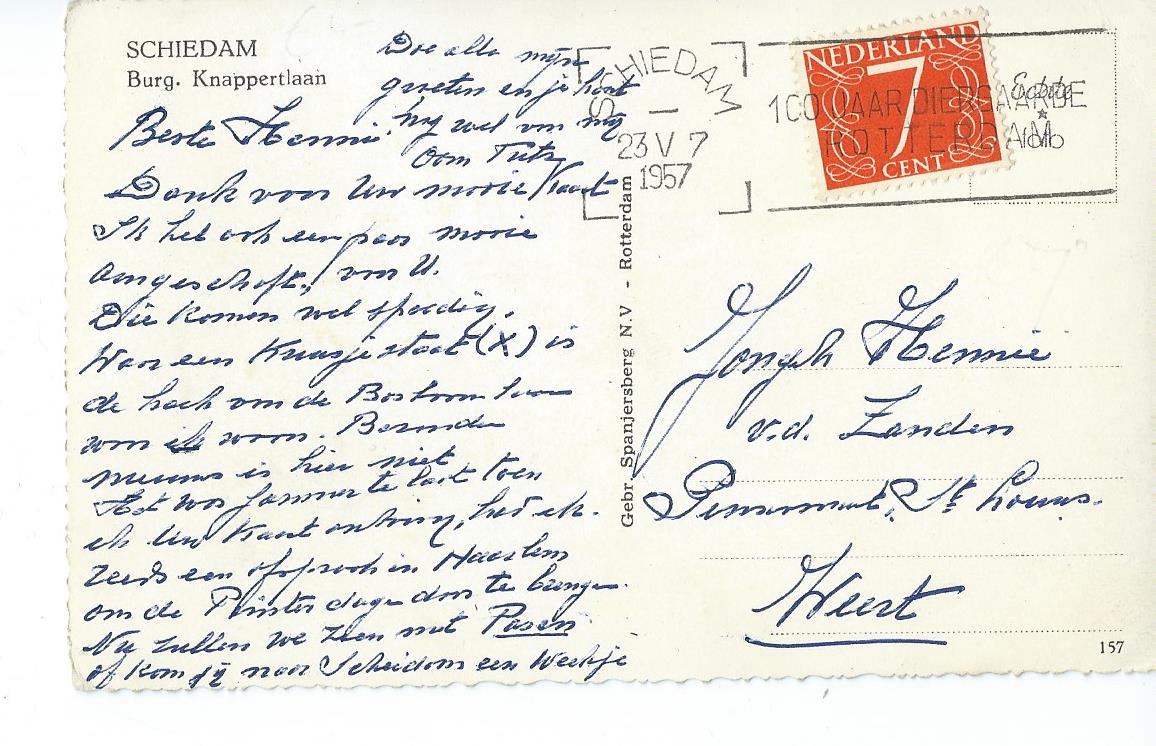 SCHIEDAM
Burg. Knappertlaan
Doe alle mijn
groeten en je hort
nog wel von mij
Oom
Beste Hennie.
Dank voor Uw mooie Kaart
Ik heb ook een paar mooie
aangeschaft, voor U.
Die komen wel spoedig.
Waar een Kruisje staat (X) is
de hoek van de
waar ik woon. Bezonder
nieuws is hier niet
Het was jammer te laat toen
ik Uw Kaart ontving, had ik
reeds een afspraak in Haarlem
om de Pinster dagen door te brengen.
Nu zullen we zien met Pasen
of kom jij naar Scheidam een Weekje
Gebr. Spanjersberg N.V - Rotterdam
SCHIEDAM
23 V 7
1957
100 JAAR DIERGAARDE
ROTTERDAM
NEDERLAND
7
CENT
Echte
foto
Jongeh Hennie
v.d. Zanden
Pensionaat St Louis.
Weert
157